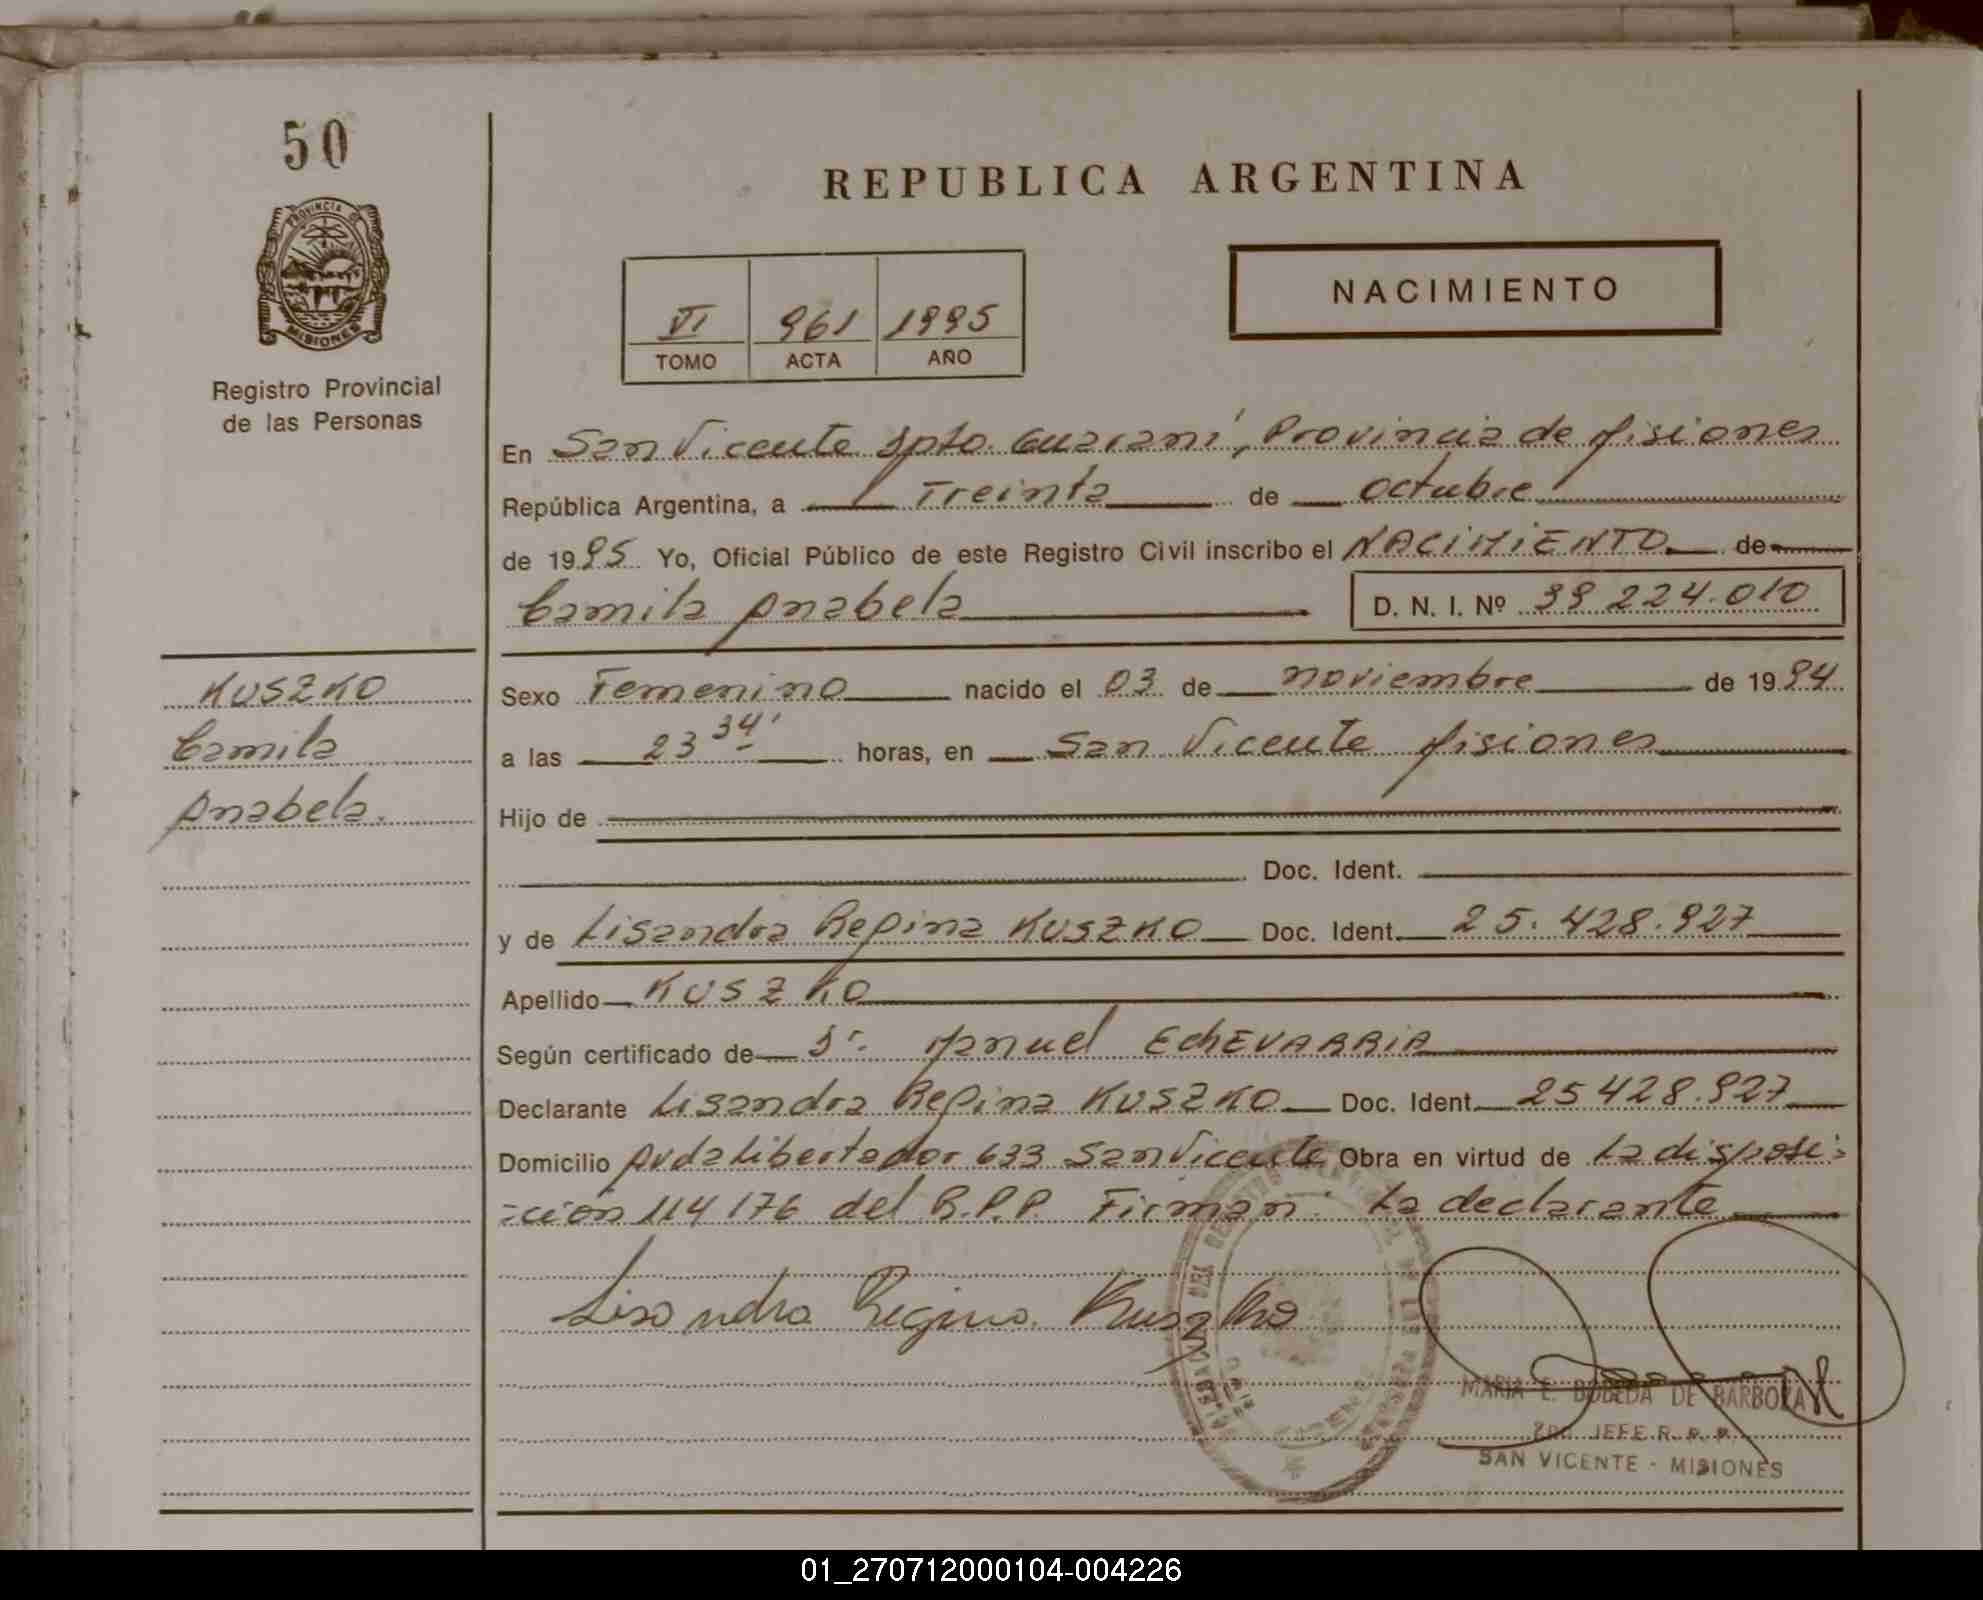 50
PROVINCIA DE
MISIONES
Registro Provincial
de las Personas
REPUBLICA ARGENTINA
NACIMIENTO
VI 961 1995
TOMO ACTA AÑO
En San Vicente Dpto. Guaraní, Provincia de Misiones
República Argentina, a Treinta de octubre
de 1995 Yo, Oficial Público de este Registro Civil inscribo el NACIMIENTO de
Camila Anabela D. N. I. Nº 39 224.010
KUSZKO
Camila
Anabela.
Sexo Femenino nacido el 03 de noviembre de 1994
a las 23 34' horas, en San Vicente Misiones
Hijo de
Doc. Ident.
y de Lisandra Regina KUSZKO Doc. Ident. 25.428.927
Apellido KUSZKO
Según certificado de Dr. Manuel EChEVARRIA
Declarante Lisandra Regina KUSZKO Doc. Ident. 25428.927
Domicilio Avda Libertador 633 San Vicente Obra en virtud de La disposi-
-ción 114/76 del R.P.P. Firman: La declarante
Lisandra Regina Kuszko
MARIA E. BOBEDA DE BARBOZA
2DO JEFE R. P. P.
SAN VICENTE - MISIONES
01_270712000104-004226